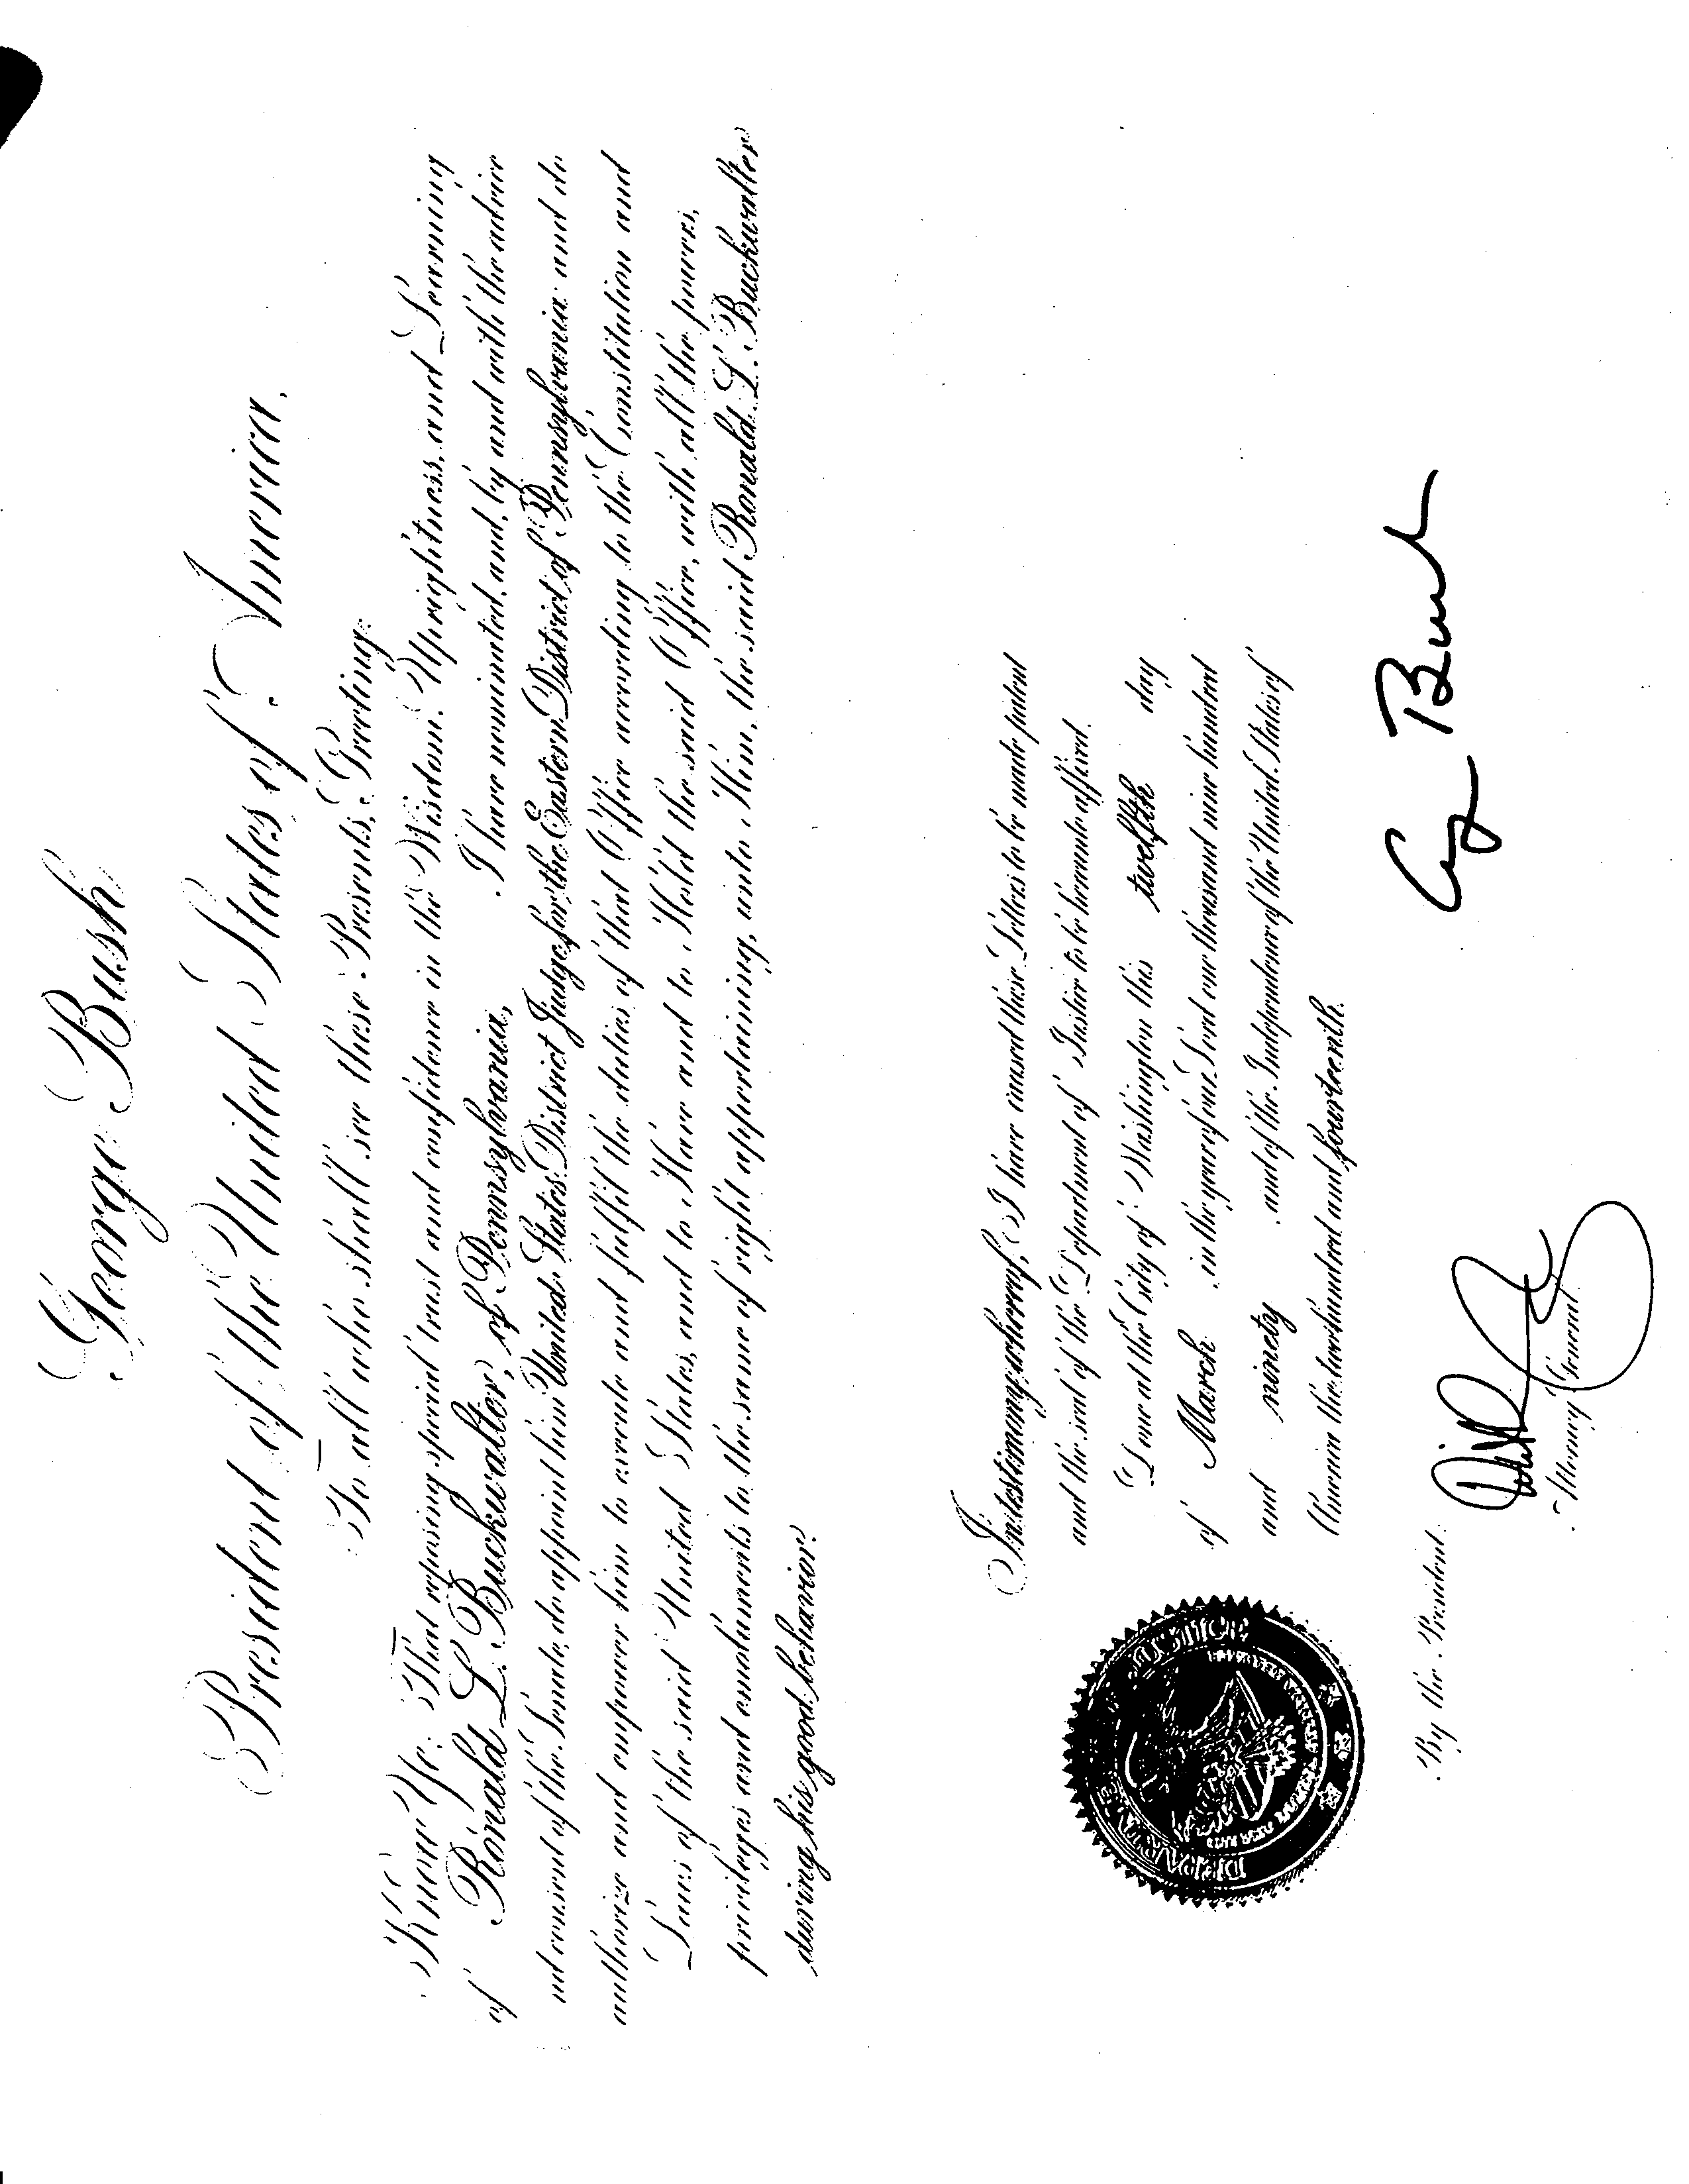 George Bush
President of the United States of America.
To all who shall see these Presents, Greeting:
Know Ye; That reposing special trust and confidence in the Wisdom, Uprightness, and Learning
of Ronald L. Buckwalter, of Pennsylvania, I have nominated, and, by and with the advice
and consent of the Senate, do appoint him United States District Judge for the Eastern District of Pennsylvania and do
authorize and empower him to execute and fulfil the duties of that Office according to the Constitution and
Laws of the said United States, and to Have and to Hold the said Office, with all the powers,
privileges and emoluments to the same of right appertaining, unto Him, the said Ronald L. Buckwalter
during his good behavior.
In testimony whereof, I have caused these Letters to be made patent
and the seal of the Department of Justice to be hereunto affixed.
Done at the City of Washington this twelfth day
of March in the year of our Lord one thousand nine hundred
and ninety and of the Independence of the United States of
America the two hundred and fourteenth.
DEPARTMENT JUSTICE
By the President:
G Bush
Attorney General.